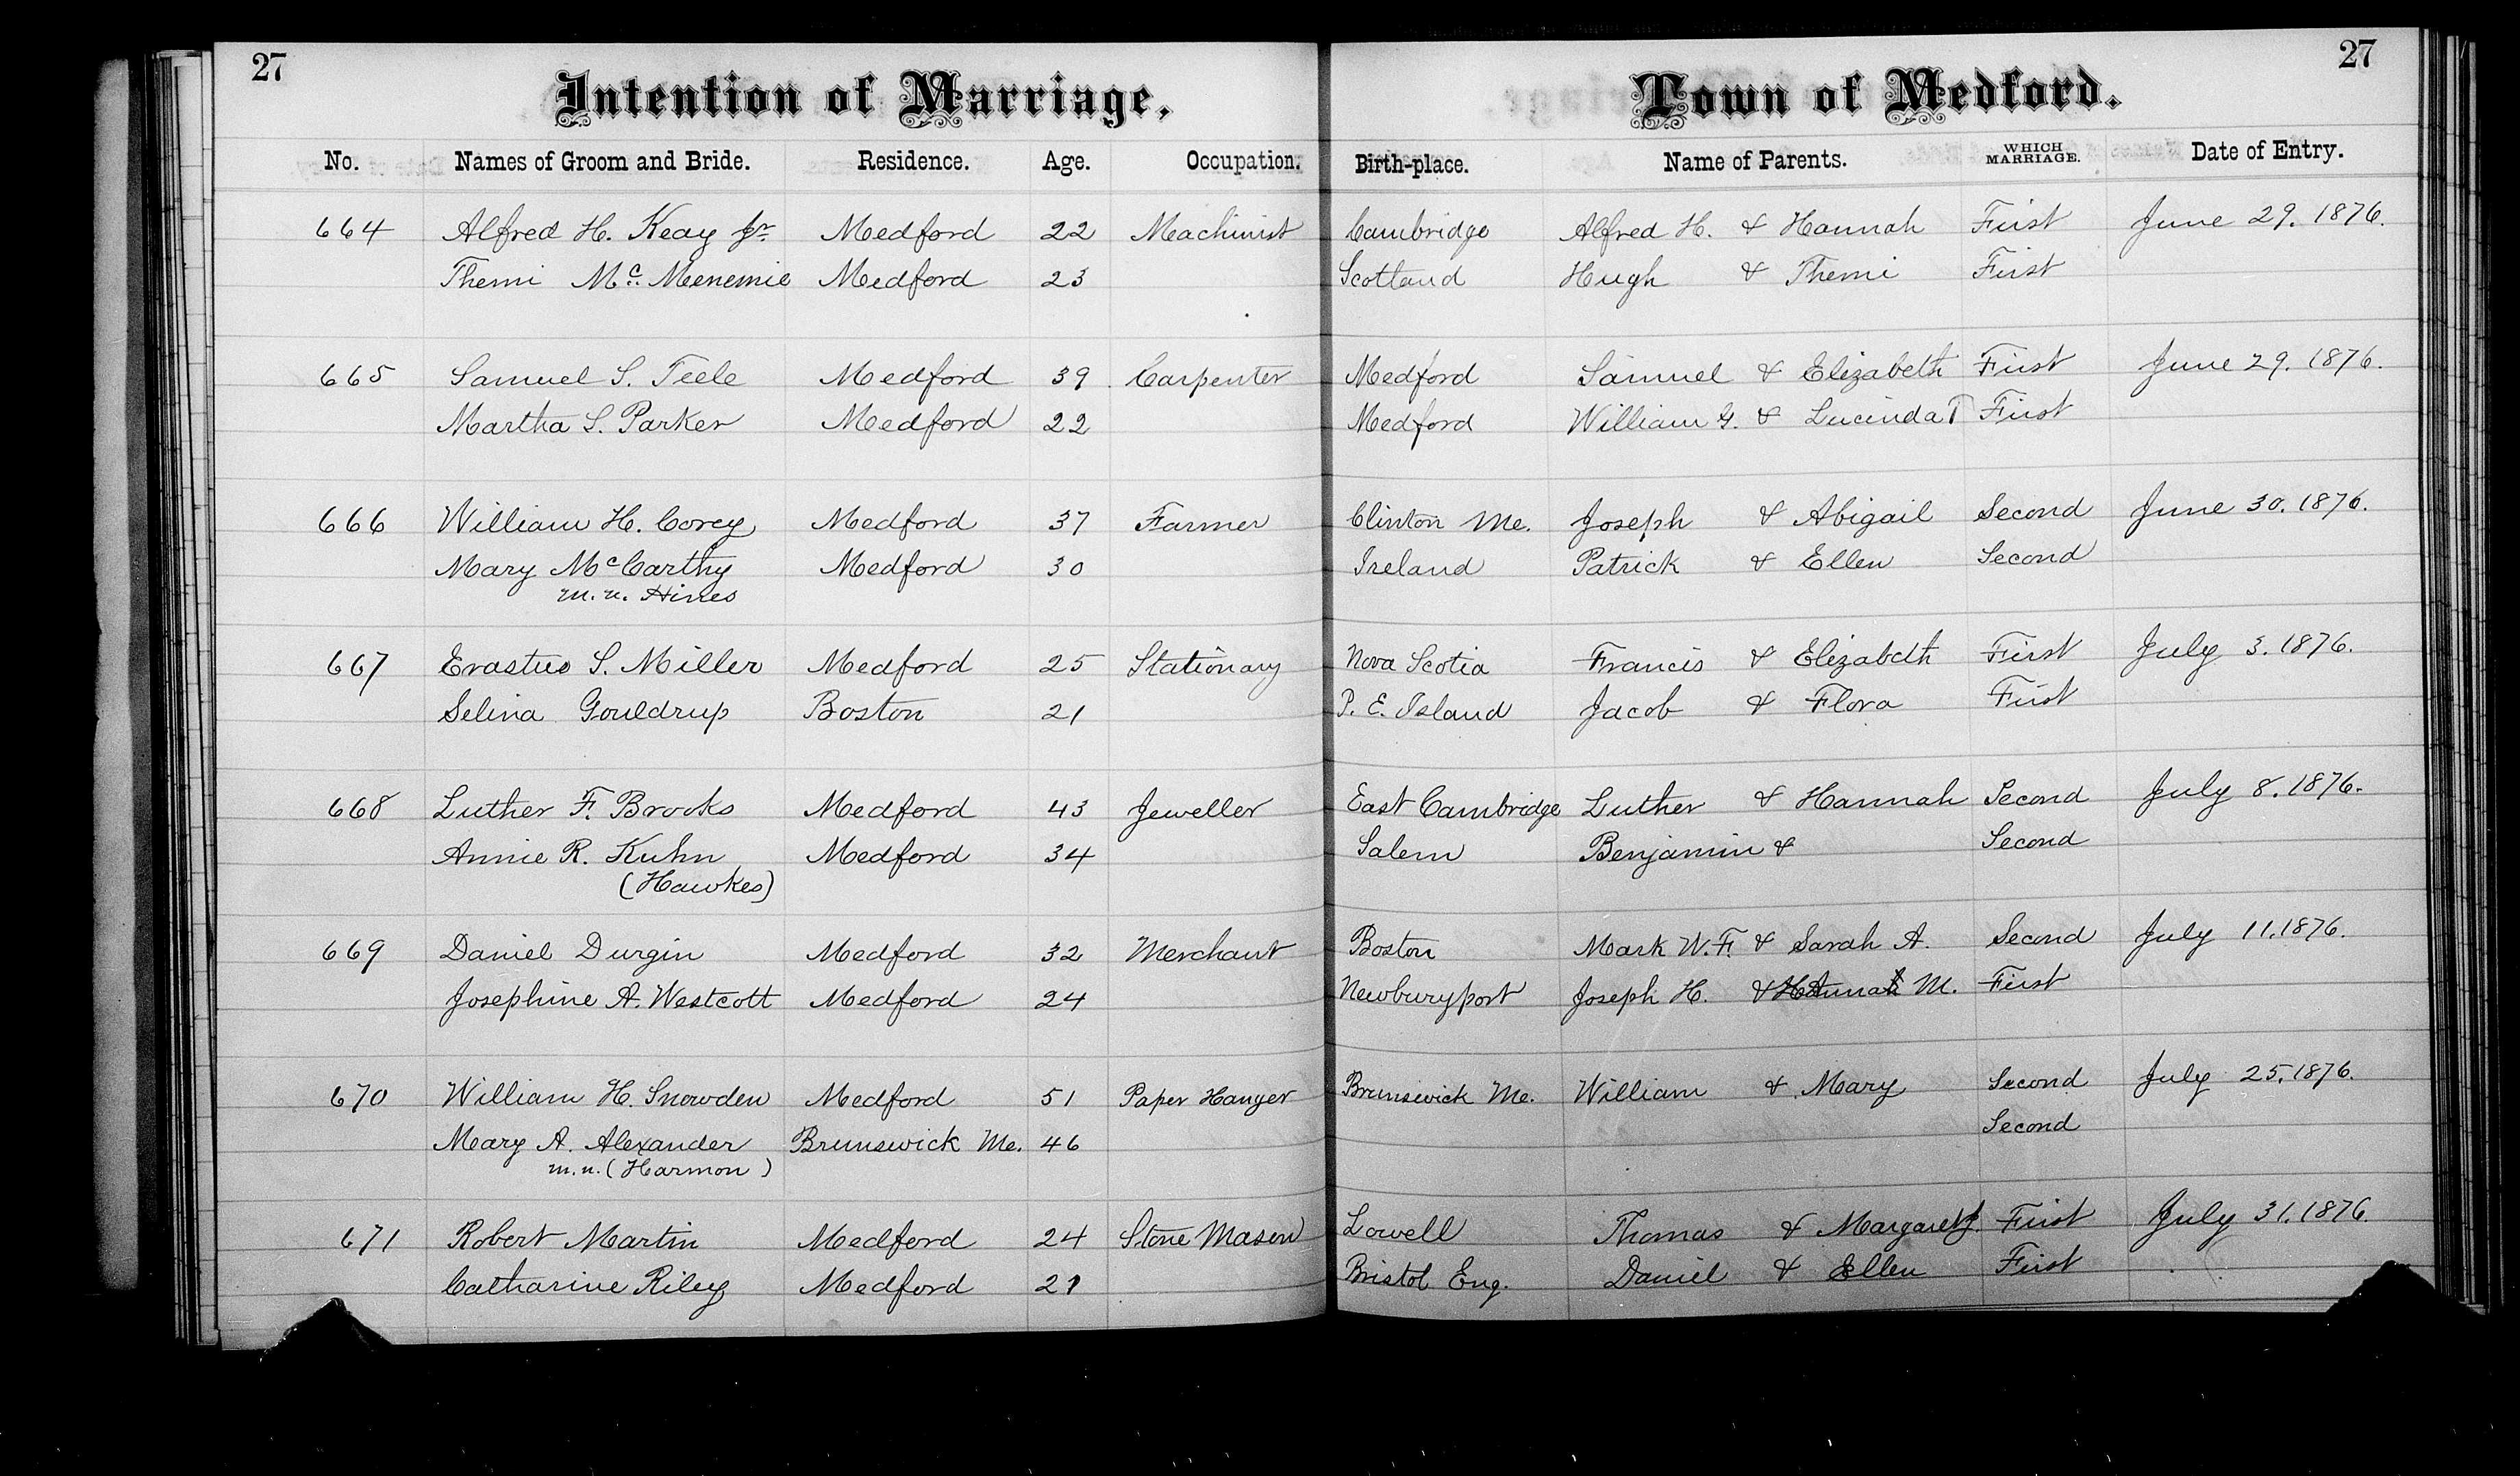 27 27
Intention of Marriage, Town of Medford.
No. Names of Groom and Bride. Residence. Age. Occupation. Birth-place. Name of Parents. WHICH MARRIAGE. Date of Entry.
664 Alfred H. Keay Jr. Medford 22 Machinist Cambridge Alfred H. & Hannah First June 29. 1876.
Themi Mc. Menemie Medford 23 Scotland Hugh & Themi First
665 Samuel S. Teele Medford 39 Carpenter Medford Samuel & Elizabeth First June 29. 1876.
Martha S. Parker Medford 22 Medford William G. & Lucinda T First
666 William H. Corey Medford 37 Farmer Clinton Me. Joseph & Abigail Second June 30. 1876.
Mary McCarthy Medford 30 Ireland Patrick & Ellen Second
m.n. Hines
667 Erastus S. Miller Medford 25 Stationary Nova Scotia Francis & Elizabeth First July 3. 1876.
Selina Gouldrup Boston 21 P. E. Island Jacob & Flora First
668 Luther F. Brooks Medford 43 Jeweller East Cambridge Luther & Hannah Second July 8. 1876.
Annie R. Kuhn Medford 34 Salem Benjamin & Second
(Hawkes)
669 Daniel Durgin Medford 32 Merchant Boston Mark W. F. & Sarah A. Second July 11. 1876.
Josephine A. Westcott Medford 24 Newburyport Joseph H. & M. First
670 William H. Snowden Medford 51 Paper Hanger Brunswick Me. William & Mary Second July 25. 1876.
Mary A. Alexander Brunswick Me. 46 Second
m.n. (Harmon)
671 Robert Martin Medford 24 Stone Mason Lowell Thomas & Margaret J. First July 31. 1876.
Catharine Riley Medford 21 Bristol Eng. Daniel & Ellen First